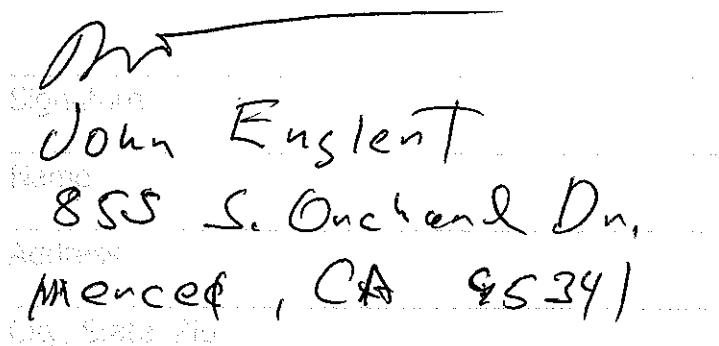 Signature
John Englert
Name
855 S. Orchard Dr.
Address
Merced, CA 95341
City, State Zip